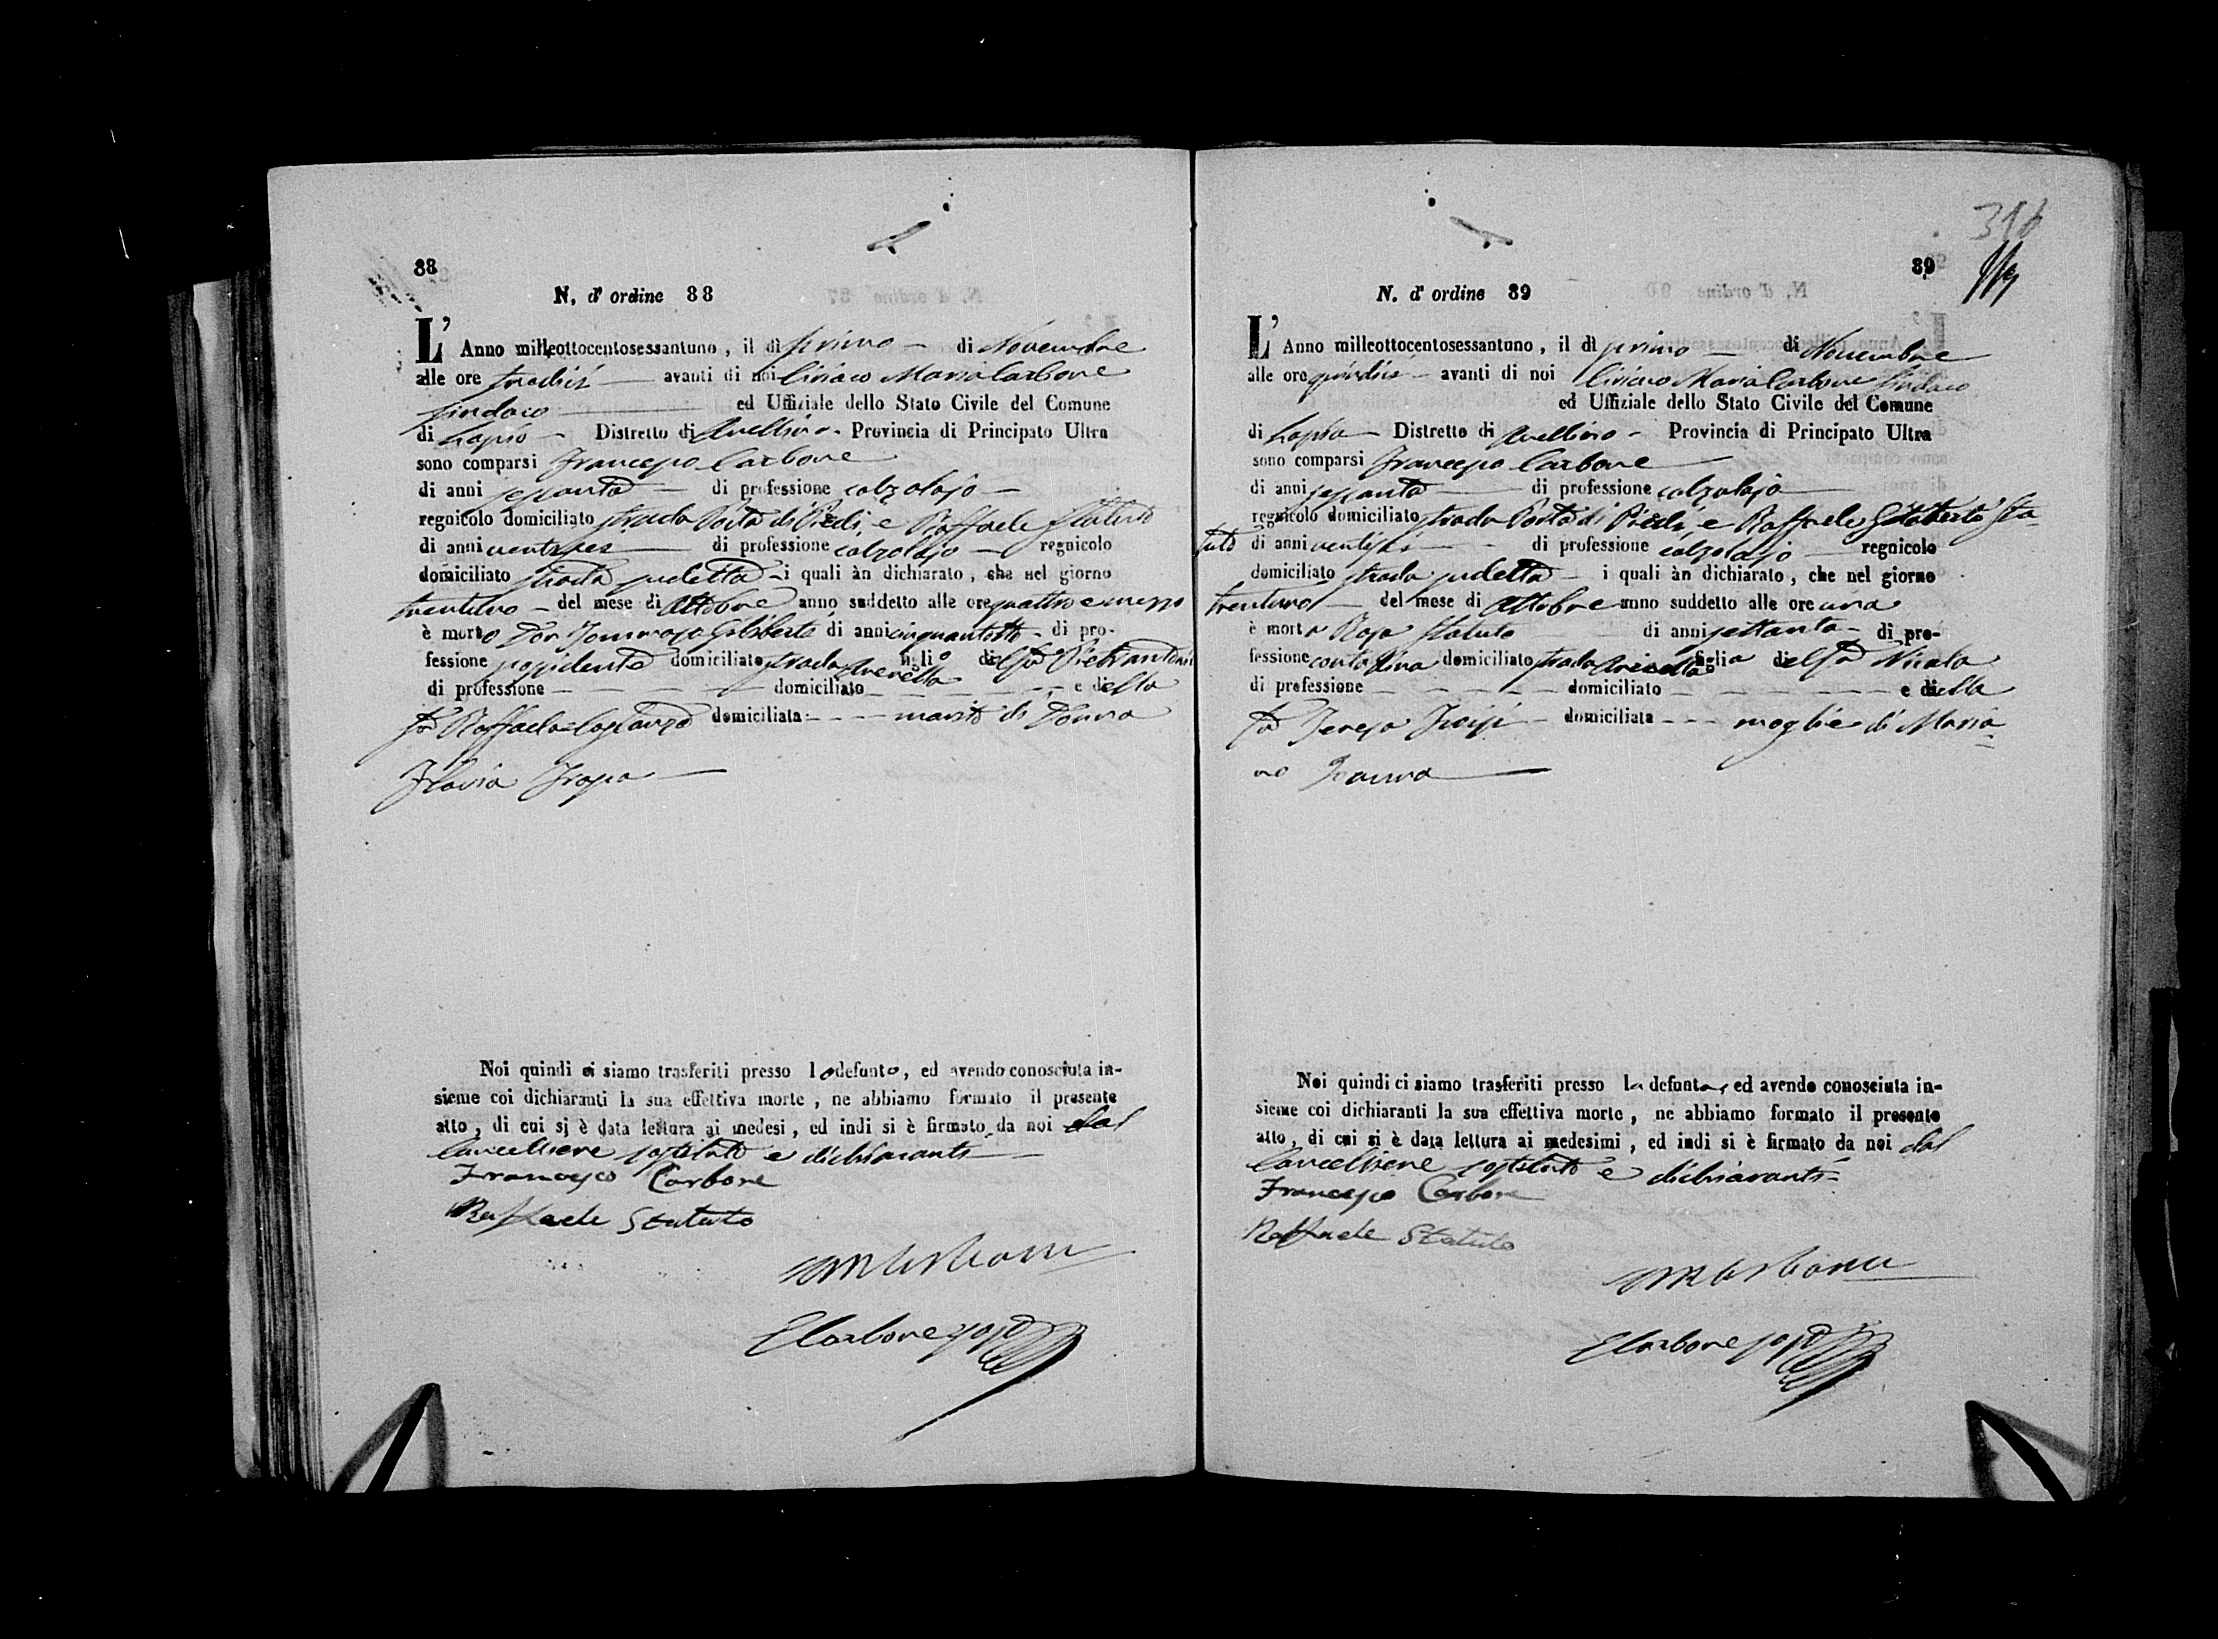 88
N. d' ordine 88
L' Anno milleottocentosessantuno, il dì primo — di Novembre
alle ore tredici — avanti di noi Ciriaco Maria Carbone
Sindaco — ed Uffiziale dello Stato Civile del Comune
di Lapio — Distretto di Avellino - Provincia di Principato Ultra
sono comparsi Francesco Carbone
di anni sessanta — di professione calzolajo —
regnicolo domiciliato strada Porta di Piedi e Raffaele Statuto
di anni ventisei — di professione calzolajo — regnicolo
domiciliato strada — i quali àn dichiarato, che nel giorno
trentuno — del mese di Ottobre anno suddetto alle ore quattro e mezzo
è morto Don Tommaso Giliberti di anni cinquantotto - di pro-
fessione possidente domiciliato strada figlio del fu Pietrantonio
di professione — domiciliato — e della
fu Raffaela domiciliata - - - marito di Donna
Flavia
Noi quindi ci siamo trasferiti presso lo defunto, ed avendo conosciuta in-
sieme coi dichiaranti la sua effettiva morte, ne abbiamo formato il presente
atto, di cui si è data lettura ai medesi, ed indi si è firmato da noi dal
Cancelliere sostituto e dichiaranti
Francesco Carbone
Raffaele Statuto
CM Carbone
E Carbone sosto
316
89
N. d' ordine 89
L' Anno milleottocentosessantuno, il dì primo — di Novembre
alle ore quindici — avanti di noi Ciriaco Maria Carbone Sindaco
ed Uffiziale dello Stato Civile del Comune
di Lapio — Distretto di Avellino - Provincia di Principato Ultra
sono comparsi Francesco Carbone
di anni sessanta — di professione calzolajo
regnicolo domiciliato strada Porta di Piedi e Raffaele Sta-
tuto di anni ventisei — di professione calzolajo — regnicolo
domiciliato strada — i quali àn dichiarato, che nel giorno
trentuno — del mese di Ottobre anno suddetto alle ore una
è morta Rosa Statuto di anni settanta - di pro-
fessione contadina domiciliato strada figlia del fu Nicola
di professione — domiciliato — e della
fu Teresa — domiciliata - - - moglie di Maria-
no
Noi quindi ci siamo trasferiti presso la defunta, ed avendo conosciuta in-
sieme coi dichiaranti la sua effettiva morte, ne abbiamo formato il presente
atto, di cui si è data lettura ai medesimi, ed indi si è firmato da noi dal
Cancelliere sostituto e dichiaranti
Francesco Carbone
Raffaele Statuto
CM Carbone
E Carbone sosto